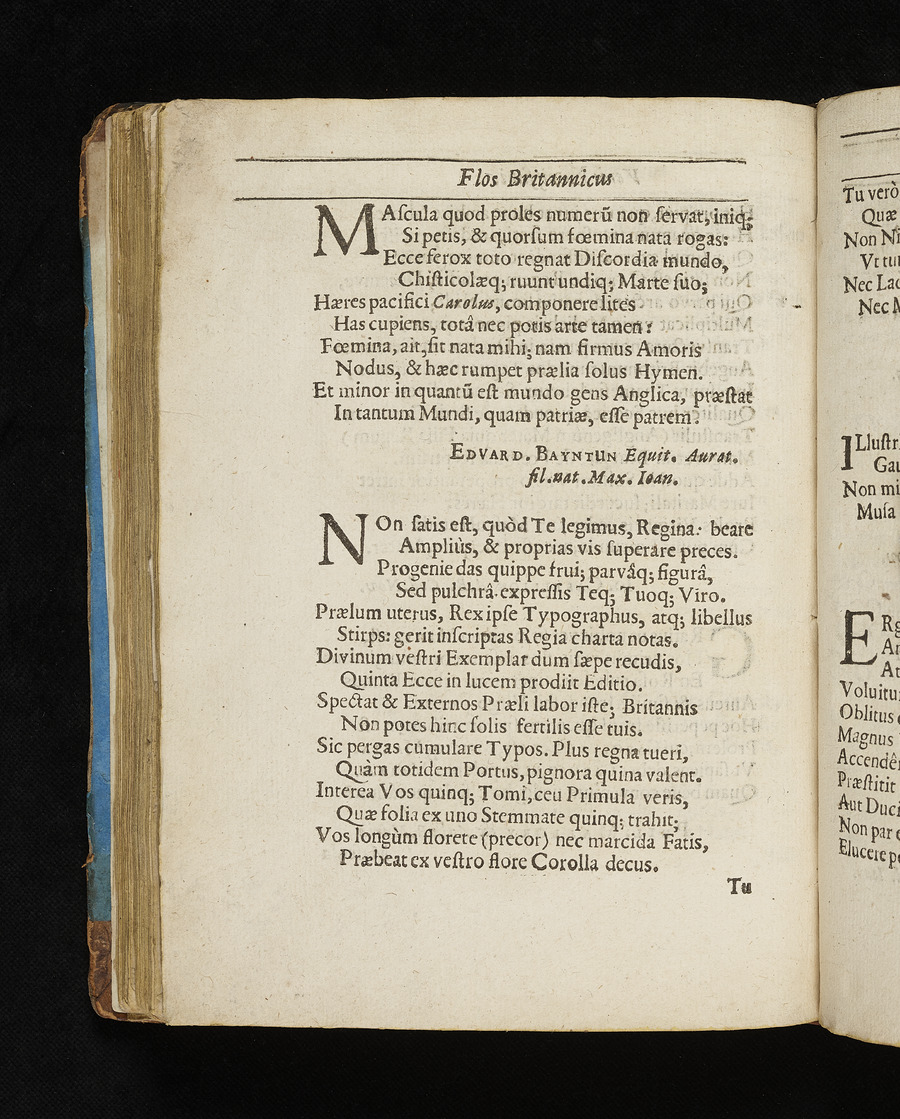 Flos Britannicus
MAſcula quod proles numerũ non ſervat, iniq;
Si petis, & quorſum fœmina nata rogas:
Ecce ferox toto regnat Diſcordia mundo,
Chiſticolæq; ruunt undiq; Marte ſuo;
Hæres pacifici Carolus, componere lites
Has cupiens, totâ nec potis arte tamen:
Fœmina, ait, ſit nata mihi; nam firmus Amoris
Nodus, & hæc rumpet prælia ſolus Hymen.
Et minor in quantũ eſt mundo gens Anglica, præſtat
In tantum Mundi, quam patriæ, eſſe patrem.
EDVARD. BAYNTUN Equit. Aurat.
fil.nat.Max. Ioan.
NOn ſatis eſt, quòd Te legimus, Regina: beare
Ampliùs, & proprias vis ſuperare preces.
Progenie das quippe frui; parvâq; figurâ,
Sed pulchrâ expreſſis Teq; Tuoq; Viro.
Prælum uterus, Rex ipſe Typographus, atq; libellus
Stirps: gerit inſcriptas Regia charta notas.
Divinum veſtri Exemplar dum ſæpe recudis,
Quinta Ecce in lucem prodiit Editio.
Spectat & Externos Præli labor iſte; Britannis
Non potes hinc ſolis fertilis eſſe tuis.
Sic pergas cumulare Typos. Plus regna tueri,
Quàm totidem Portus, pignora quina valent.
Interea Vos quinq; Tomi, ceu Primula veris,
Quæ folia ex uno Stemmate quinq; trahit;
Vos longùm florete (precor) nec marcida Fatis,
Præbeat ex veſtro flore Corolla decus.
Tu
Tu verò
Quæ
Non Ni
Nec Lac
Nec M
ILluſtr
Gau
Non mi
Muſa
ERg
Voluitu
Oblitus
Magnus
Accendê
Præſtitit
Aut Duci
Non par
Elucere p